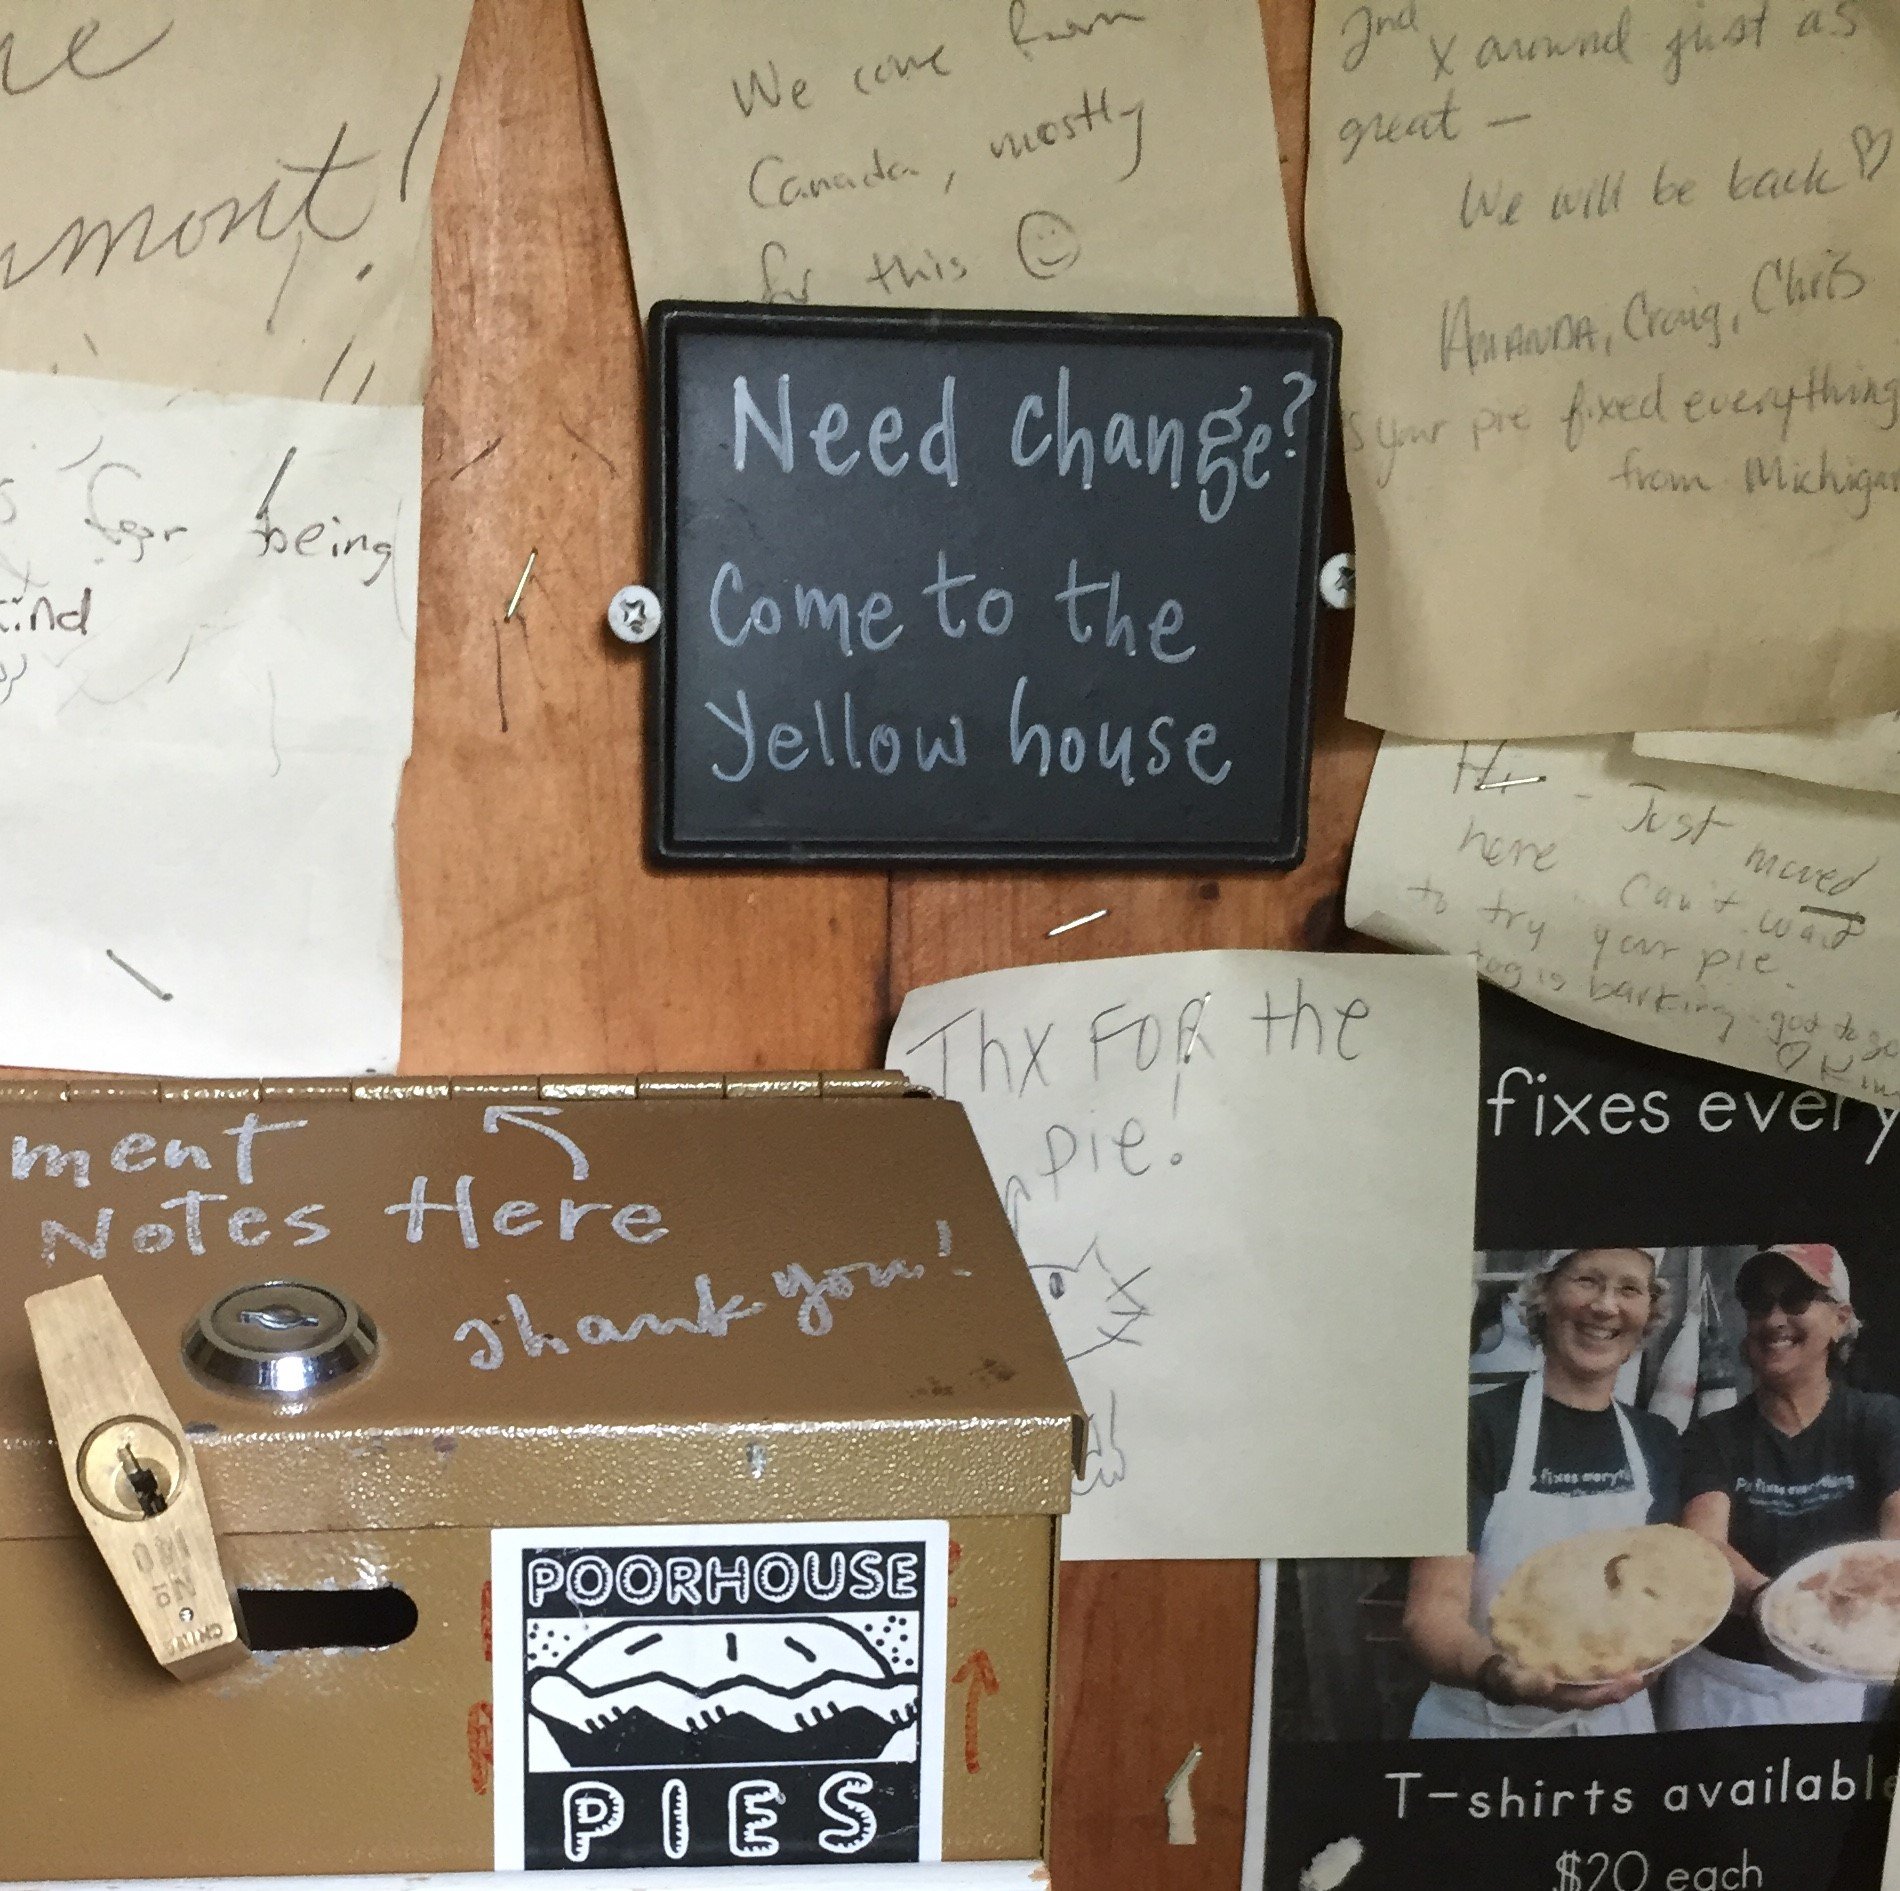 mont!
for being
kind
We come from
Canada, mostly
for this
2nd x around just as
great —
We will be back
Amanda, Craig, Chris
your pie fixed everything
from Michigan
Need change?
Come to the
yellow house
Hi - Just moved
here. Can't wait
to try your pie.
dog is barking - got to go
Kim
Thx FOR the
pie!
ment
Notes Here
Thank you!
No 140
CHINA
POORHOUSE
PIES
fixes every
fixes everyth
Pie fixes everything
T-shirts available
$20 each